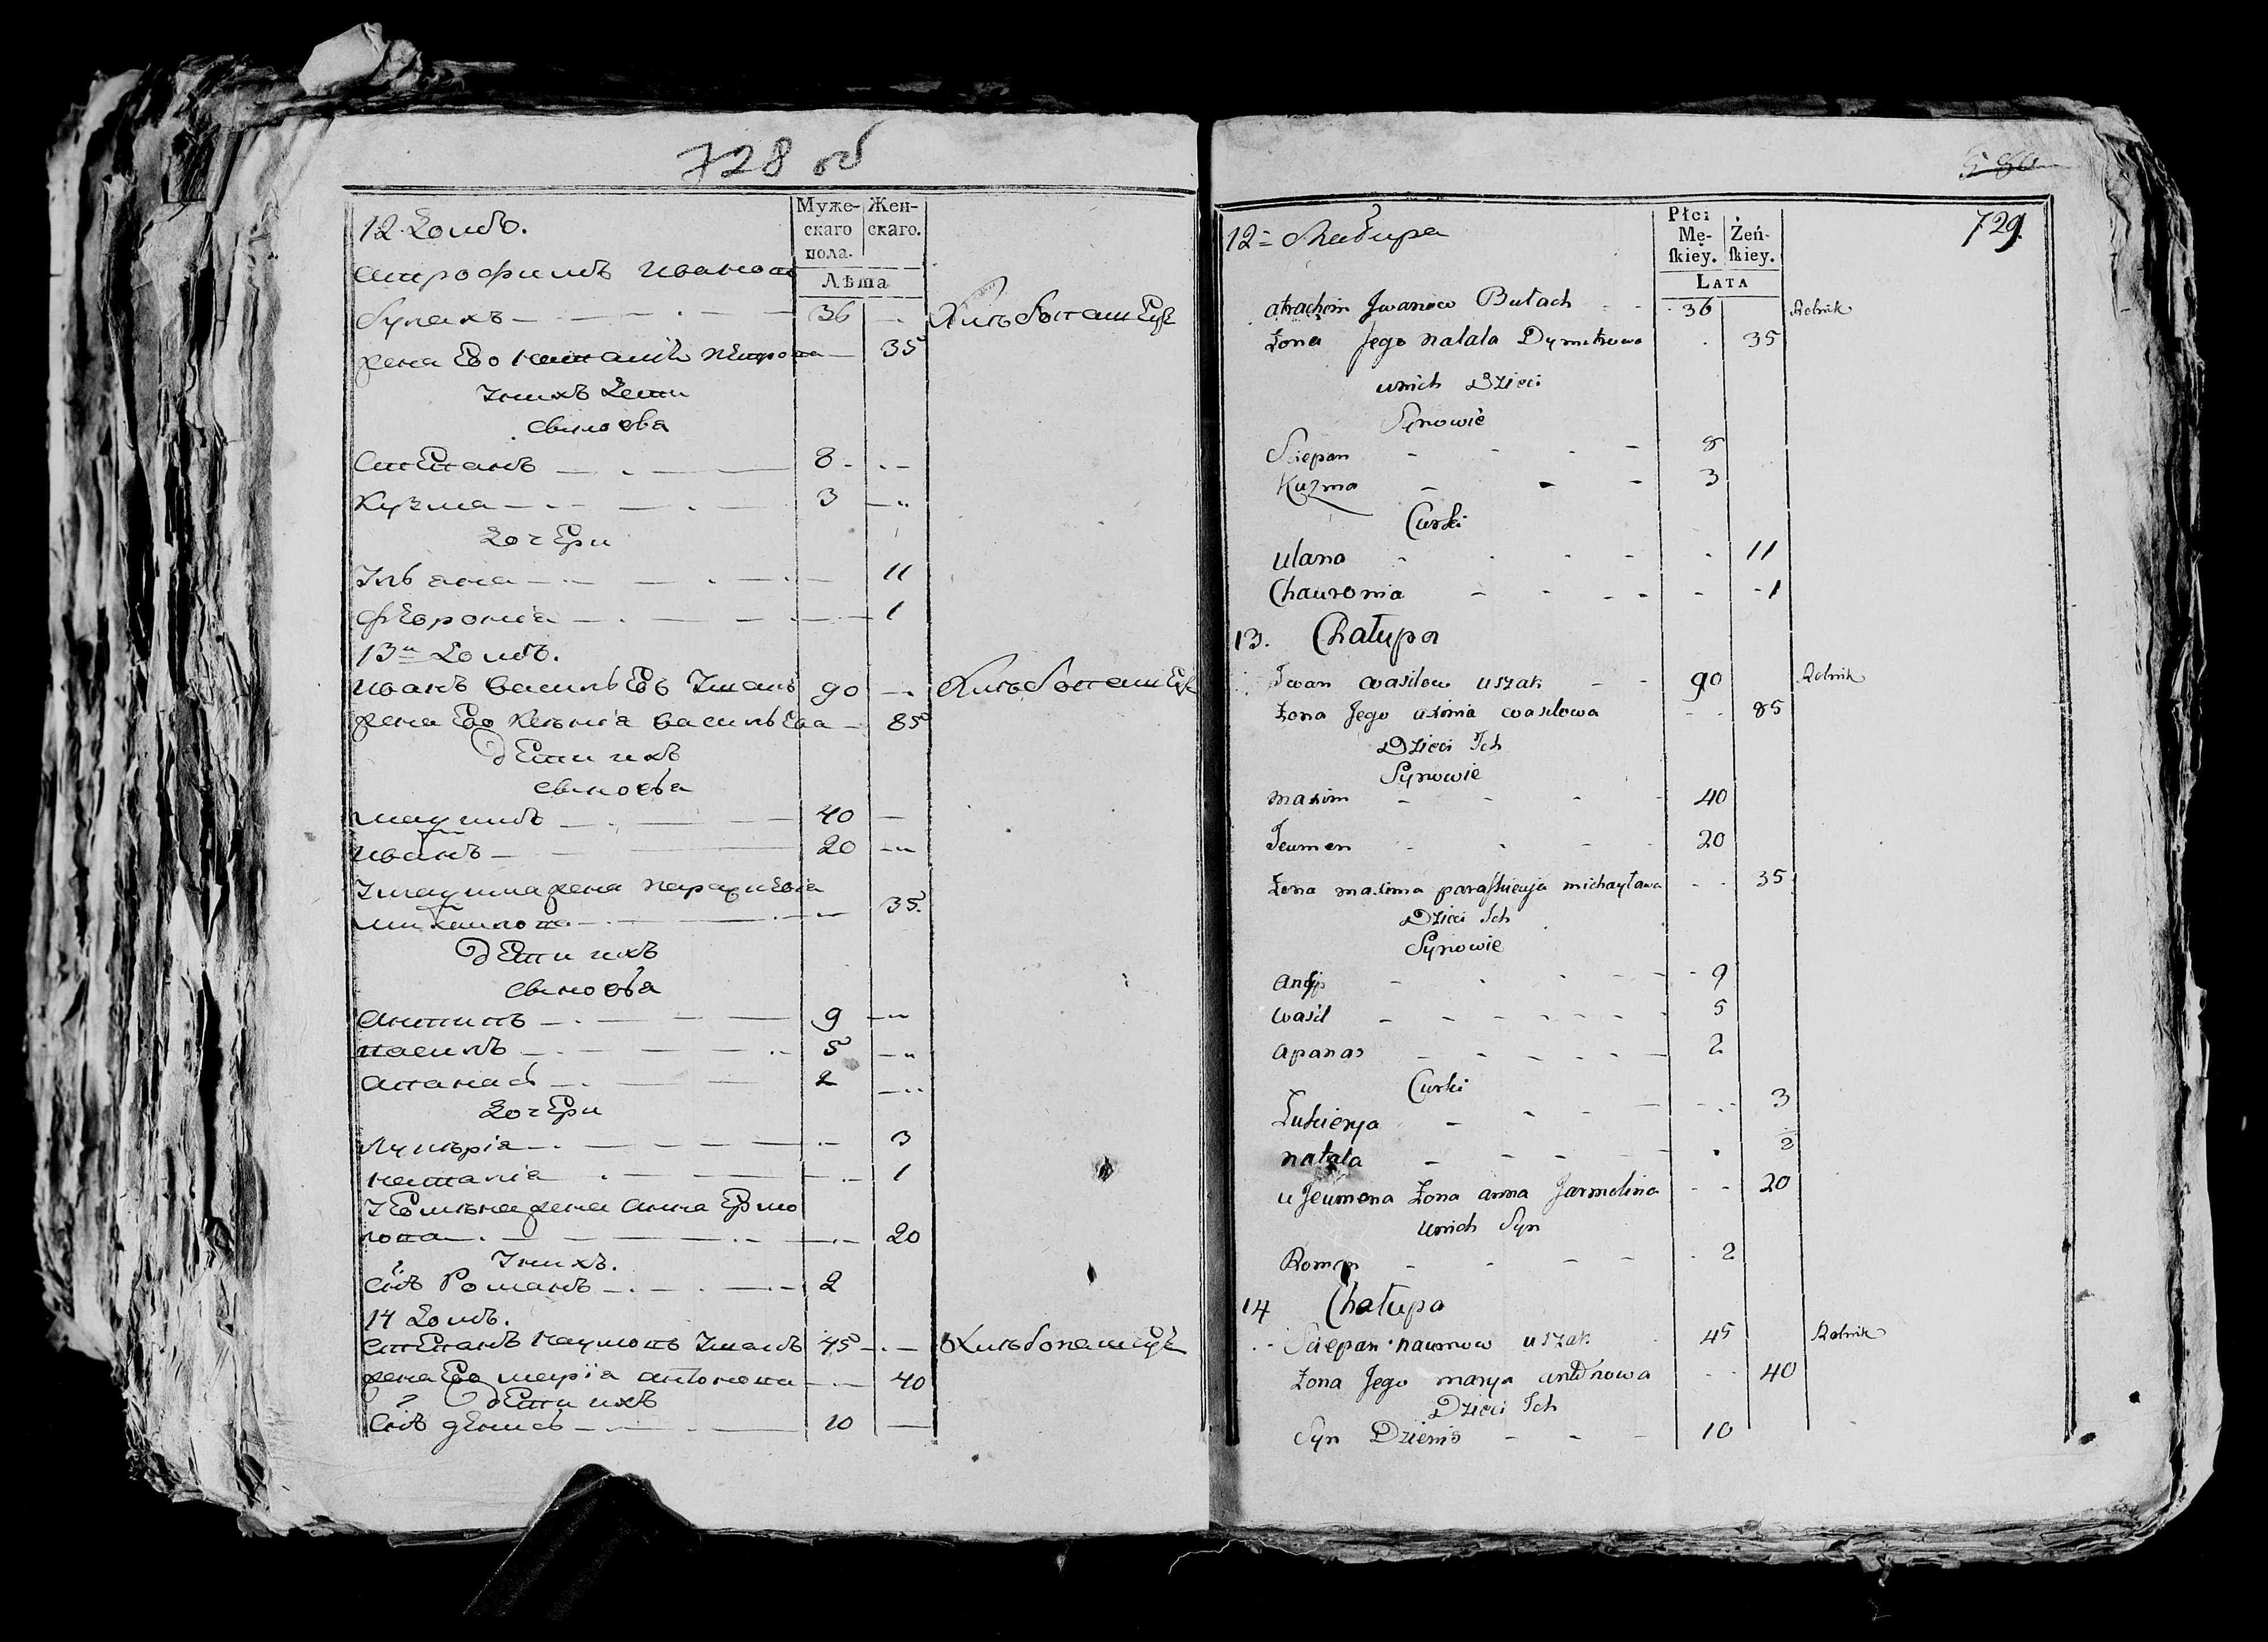 728 об
12 Домъ.
Муже-
скаго
пола.
Жен-
скаго.
Лѣта
Атрофимъ Иванов
Булахъ 36 Хлебопашец
жена Ево Наталия 35
Унихъ Дети
Сыновва
Степанъ 8
Кузма 3
Дочери
Ульяна 11
Феврония 1
13й Домъ.
Иванъ Васильевъ Ушакъ 90 Хлебопашец
жена Ево Ксения Васильева 85
Дети ихъ
Сыновва
Максимъ 40
Иванъ 20
Умаксима жена Параскевия
Михаилова 35
Дети ихъ
Сыновва
Антипъ 9
Василъ 5
Апанасъ 2
Дочери
Лукерія 3
Наталія 1
жена Анна Ермо
лова 20
Унихъ.
Снъ Романъ 2
14 Домъ.
Степанъ Наумовъ Ушакъ 45 Хлебопашец
жена Ево Марїа Антонова 40
Дети ихъ
Снъ Денисъ 10
729
12 Chałupa
Płci
Mę-
ſkiey.
Żeń-
ſkiey.
Lata
atrachim Jwanow Bułach 36 Rolnik
Żona Jego natala Dymitrowa 35
unich Dzieci
Synowie
Sciepan 8
Kuzma 3
Curki
ulana 11
Chauronia 1
13. Chałupa
Iwan wasilow uszak 90 Rolnik
Żona Jego axinia wasilowa 85
Dzieci Ich
Synowie
maxim 40
Jeumen 20
Żona maxima paraſkiewja michayłowa 35
Dzieci Ich
Synowie
Antip 9
wasil 5
apanas 2
Curki
Łukierya 3
natala
u Jeumena Żona anna Jarmolina 20
unich Syn
Roman 2
14 Chałupa
Sciepan naumow uszak 45 Rolnik
Żona Jego marya antonowa 40
Dzieci Ich
Syn Dzienis 10